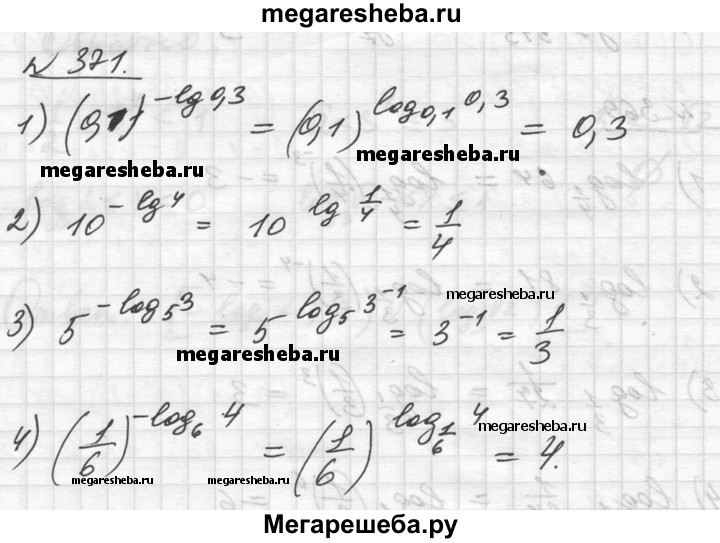 megaresheba.ru
№ 371.
1) (0,1)^{-lg 0,3} = (0,1)^{log_{0,1} 0,3} = 0,3
megaresheba.ru megaresheba.ru
2) 10^{-lg 4} = 10^{lg \frac{1}{4}} = \frac{1}{4}
megaresheba.ru
3) 5^{-log_5 3} = 5^{-log_5 3^{-1}} = 3^{-1} = \frac{1}{3}
megaresheba.ru
4) (\frac{1}{6})^{-log_6 4} = (\frac{1}{6})^{log_{\frac{1}{6}} 4} = 4.
megaresheba.ru megaresheba.ru megaresheba.ru
Мегарешеба.ру